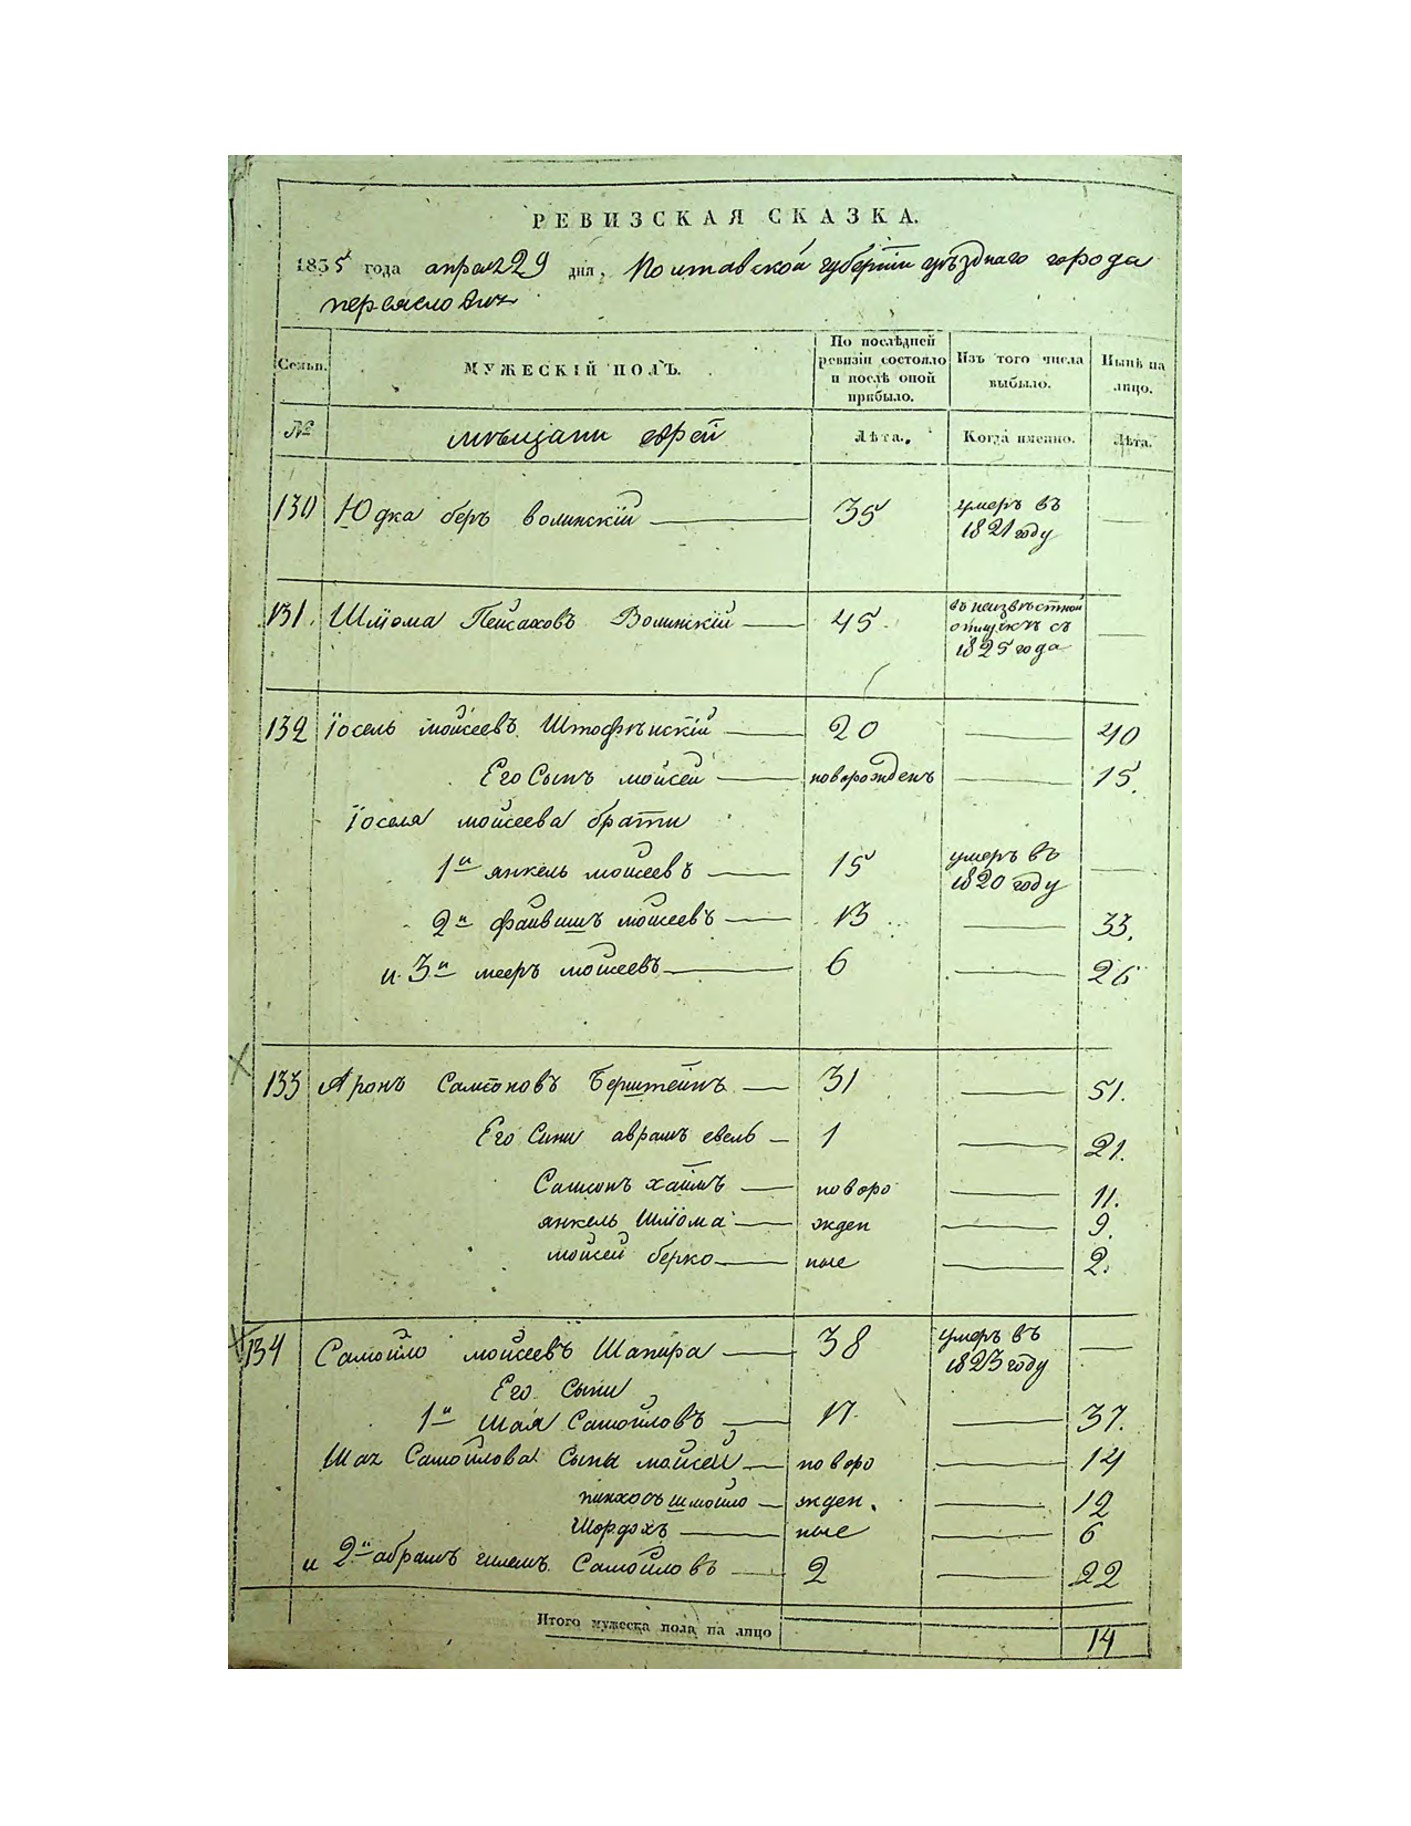 РЕВИЗСКАЯ СКАЗКА.
1835 года апреля 29 дня, Полтавской губернїи уѣзднаго города
переяслова
Семьи. МУЖЕСКІЙ ПОЛЪ. По послѣдней ревизіи состояло и послѣ оной прибыло. Изъ того числа выбыло. Нынѣ на лицо.
№ мѣщани еврей Лѣта. Когда именно. Лѣта.
130 Юдка беръ волинскїй 35 умеръ въ 1821 году —
131. Шлїома Пейсаховъ Волинскїй 45 въ неизвѣстной отлучкѣ съ 1825 года —
132 Їосель мойсеевъ Штофѣнскїй 20 — 40
Его Сынъ мойсей новорожденъ — 15.
Їоселя мойсеева брати
1й янкель мойсеевъ 15 умеръ въ 1820 году —
2й файвишъ мойсеевъ 13 — 33.
и 3й мееръ мойсеевъ 6 — 26
133 Аронъ Самсоновъ Берштейнъ 31 — 51.
Его Сини аврамъ евель 1 — 21.
Самсонъ хаїмъ новоро — 11.
янкель Шлїома жден — 9.
мойсей берко ные — 2.
134 Самойло мойсеевъ Шапира 38 умеръ въ 1823 году —
Его Сыни
1й Шая Самойловъ 17. — 37.
Шаи Самойлова Сыны мойсей новоро — 14
пинхосъ шмойло жден. — 12
ные — 6
и 2й абрамъ Самойловъ 2 — 22
Итого мужеска пола на лицо 14